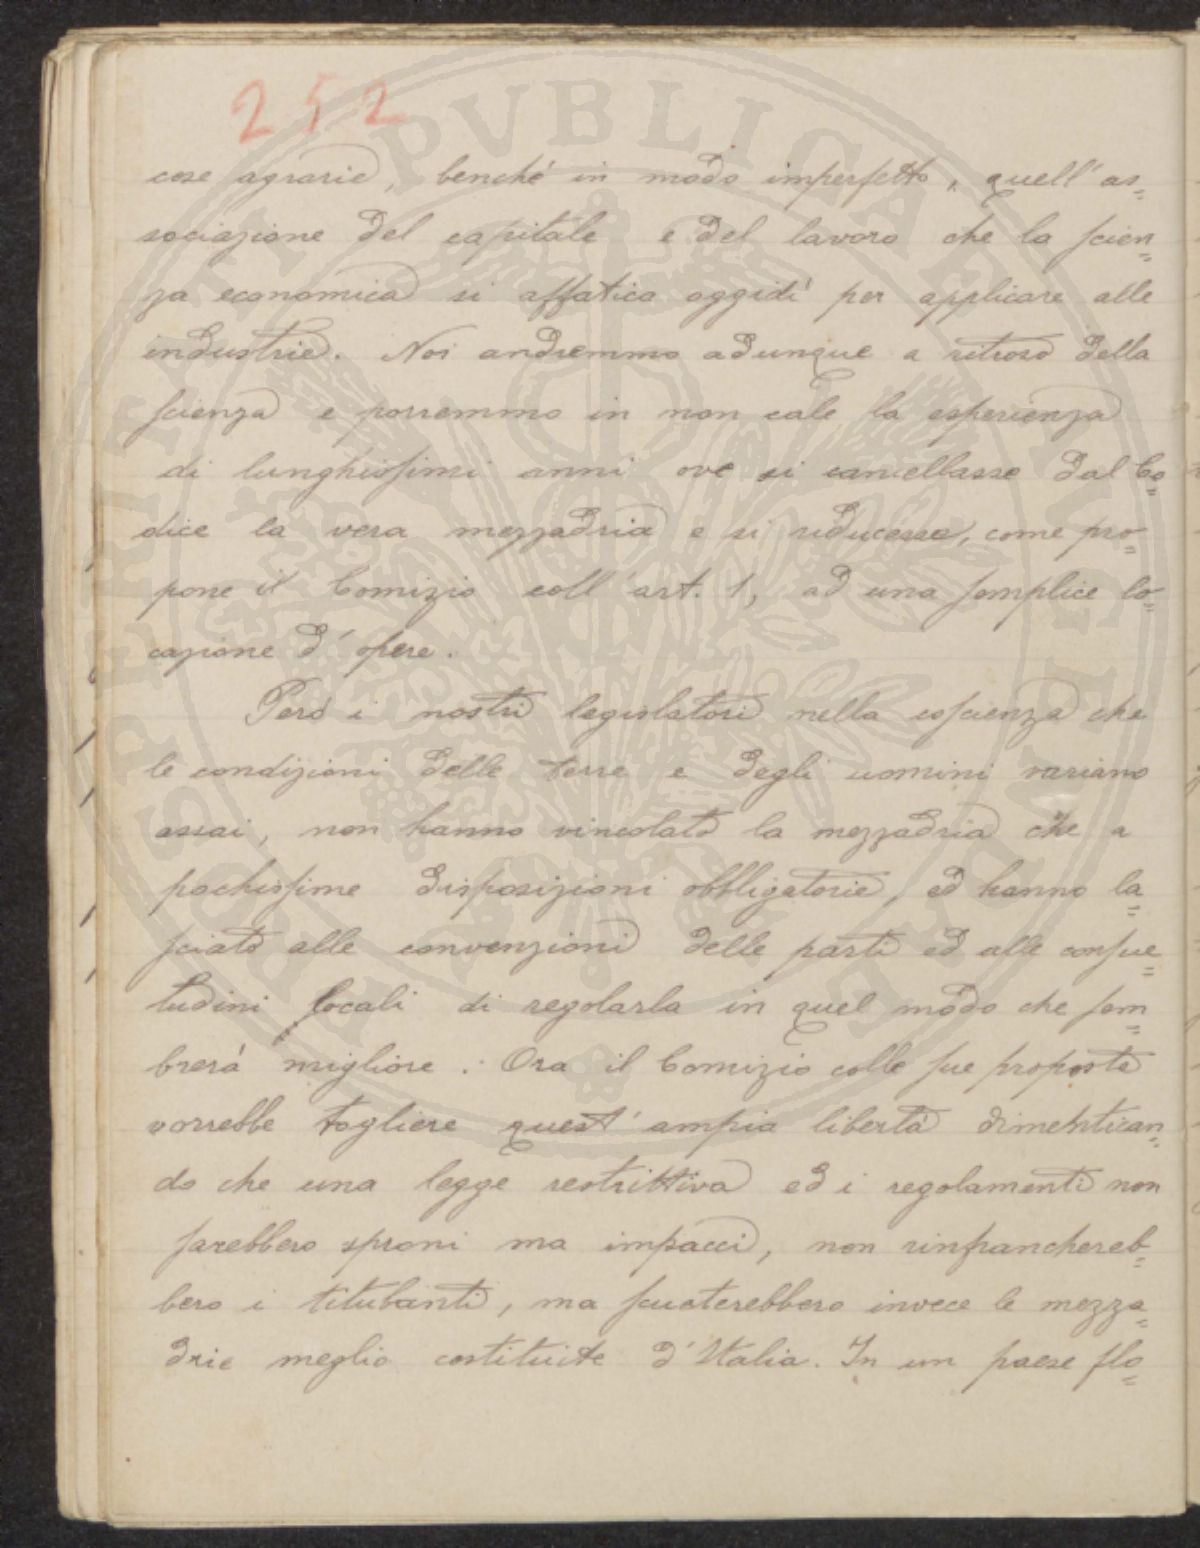 252
cose agrarie, benché in modo imperfetto, quell'as=
sociazione del capitale e del lavoro che la scien=
za economica si affatica oggidì per applicare alle
industrie. Noi andremmo adunque a ritroso della
scienza e porremmo in non cale la esperienza
di lunghissimi anni ove si cancellasse dal Co=
dice la vera mezzadria e si riducesse, come pro=
pone il Comizio coll'art. 1, ad una semplice lo=
cazione d'opere.
Però i nostri legislatori nella coscienza che
le condizioni delle terre e degli uomini variano
assai, non hanno vincolato la mezzadria che a
pochissime disposizioni obbligatorie, ed hanno la=
sciato alle convenzioni delle parti ed alle consue=
tudini locali di regolarla in quel modo che sem=
brerà migliore. Ora il Comizio colle sue proposte
vorrebbe togliere quest'ampia libertà dimentican=
do che una legge restrittiva ed i regolamenti non
sarebbero sproni ma impacci, non rinfranchereb=
bero i titubanti, ma scuoterebbero invece le mezza=
drie meglio costituite d'Italia. In un paese flo=